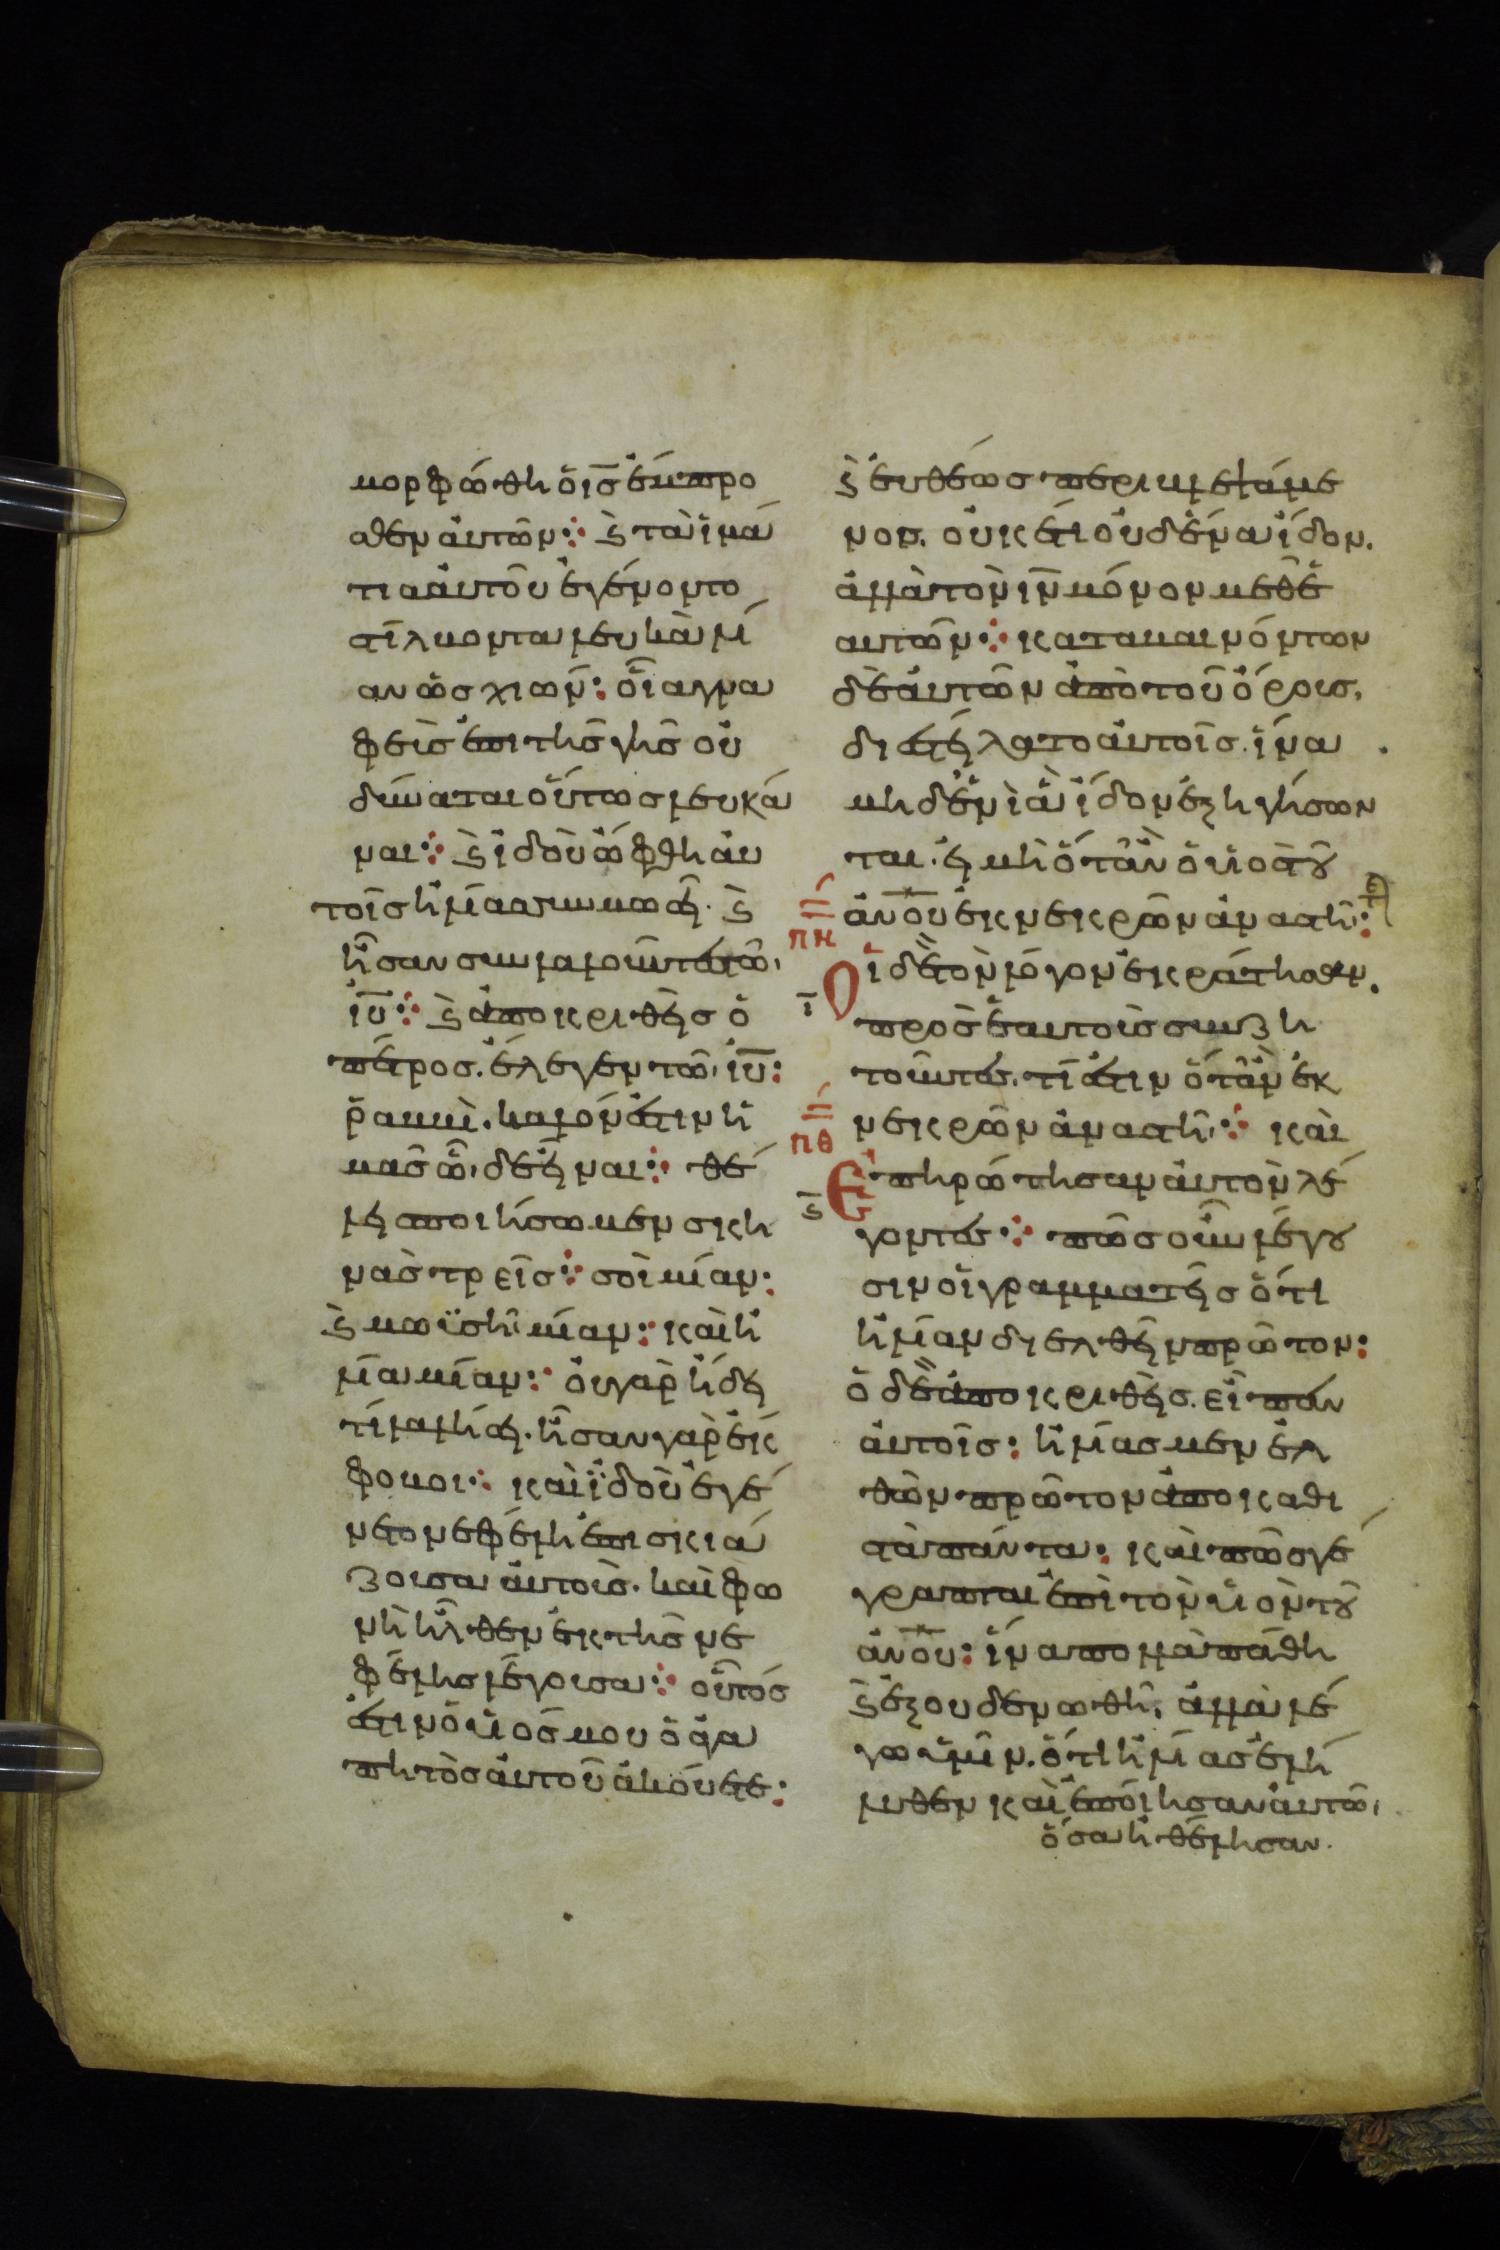 μορφώθη ὁ ι̅ς̅ ἔμπρο
σθεν αὐτῶν: ϗ τὰ ἱμά
τια αὐτοῦ ἐγένοντο
στίλβοντα λευκὰ λί
αν ὡς χιών: οἷα γνα
φεὺς ἐπὶ τῆς γῆς οὐ
δύναται οὕτως λευκά
ναι: ϗ ἰδοὺ ὤφθη αὐ
τοῖς ἡλίας συν μωσεῖ. ϗ
ἦσαν συνλαλοῦντες τῷ
ι̅υ̅: ϗ ἀποκριθεὶς ὁ
πέτρος. ἔλεγεν τῷ ι̅υ̅:
ῥαββὶ. καλόν ἐστιν ἡ
μᾶς ὧδε εἶναι: θέ
λεις ποιήσωμεν σκη
νὰς τρεῖς: σοὶ μίαν:
ϗ μωϋσῆ μίαν: καὶ ἡ
λία μίαν: οὐ γὰρ ἤδει
τί λαλήσει. ἦσαν γὰρ ἔκ
φοβοι: καὶ ἰδοὺ ἐγέ
νετο νεφέλη ἐπισκιά
ζουσα αὐτοῖς. καὶ φω
νὴ ἦλθεν ἐκ τῆς νε
φέλης λέγουσα: οὗτός
ἐστιν ὁ υἱός μου ὁ ἀγα
πητὸς αὐτοῦ ἀκούετε:
ϗ εὐθέως περιβλεψάμε
νοι. οὐκέτι οὐδένα ἴδον.
ἀλλὰ τὸν ι̅ν̅ μόνον μεθ ἑ
αυτῶν: καταβαινόντων
δὲ αὐτῶν ἀπὸ τοῦ ὄρους,
διεστείλατο αὐτοῖς. ἵνα
μηδενὶ ἃ ἴδον ἐξηγήσων
ται. εἰ μὴ ὅταν ὁ υἱὸς τοῦ
ἀ̅ν̅ο̅υ̅ ἐκ νεκρῶν ἀναστῆ:
πη
ι̅ Οἱ δὲ τὸν λόγον ἐκράτησαν.
πρὸς ἑαυτοὺς συνζη
τοῦντες. τί ἐστιν ὅταν ἐκ
νεκρῶν ἀναστῆ: καὶ
πθ
ς̅ Ἐπηρώτησαν αὐτὸν λέ
γοντες: πῶς οὖν λέγου
σιν οἱ γραμματεῖς ὅτι
ἡλίαν δεῖ ελθεῖν πρῶτον:
ὁ δὲ ἀποκριθεὶς. εἶπεν
αὐτοῖς: ἡλίας μεν ἐλ
θὼν πρῶτον ἀποκαθι
στὰ πάντα: καὶ πῶς γέ
γραπται ἐπὶ τὸν υἱὸν τοῦ
ἀ̅ν̅ο̅υ̅: ἵνα πολλὰ πάθη
ϗ ἐξουδενωθῆ, ἀλλὰ λέ
γω ὑμῖν. ὅτι ἡλίας ἐλή
λυθεν καὶ ἐποίησαν αὐτῷ,
ὅσα ἠθέλησαν.